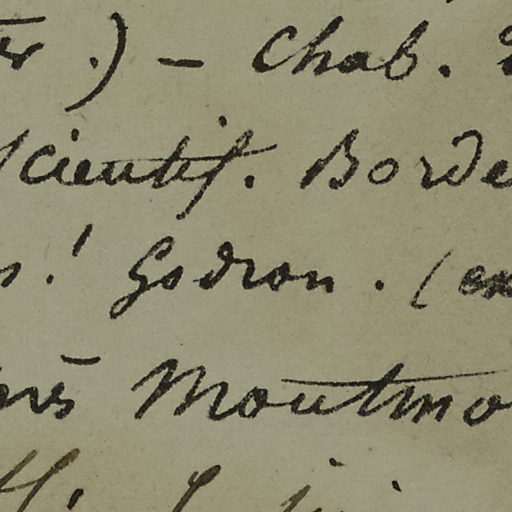 .) – Chab.
Scientif. Borde
s! Godron. (ex
Montmo